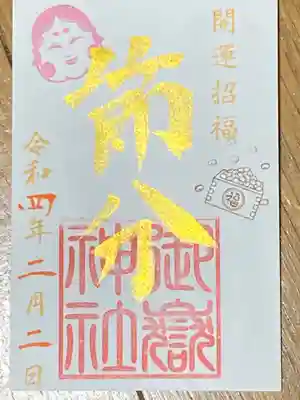 開運招福
節分
御嶽
神社
令和四年二月二日